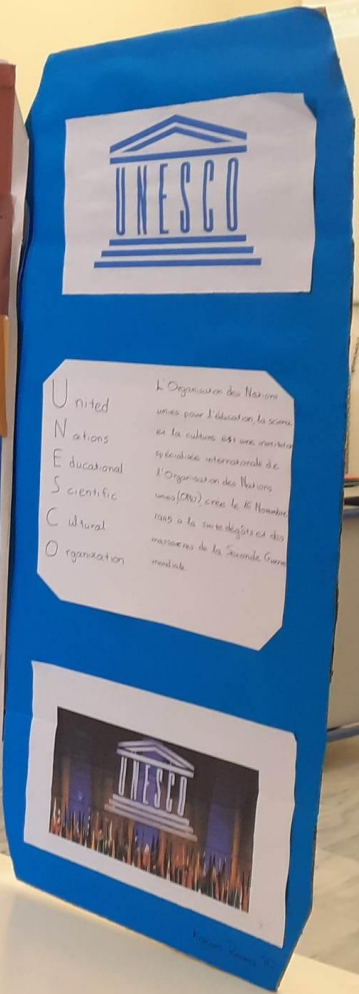 UNESCO
United
Nations
Educational
Scientific
Cultural
Organization
L'Organisation des Nations
unies pour l'éducation, la science
et la culture est une institution
spécialisée internationale de
l'Organisation des Nations
unies (ONU), créée le 16 Novembre
1945 à la suite dégâts et des
massacres de la Seconde Guerre
mondiale.
UNESCO